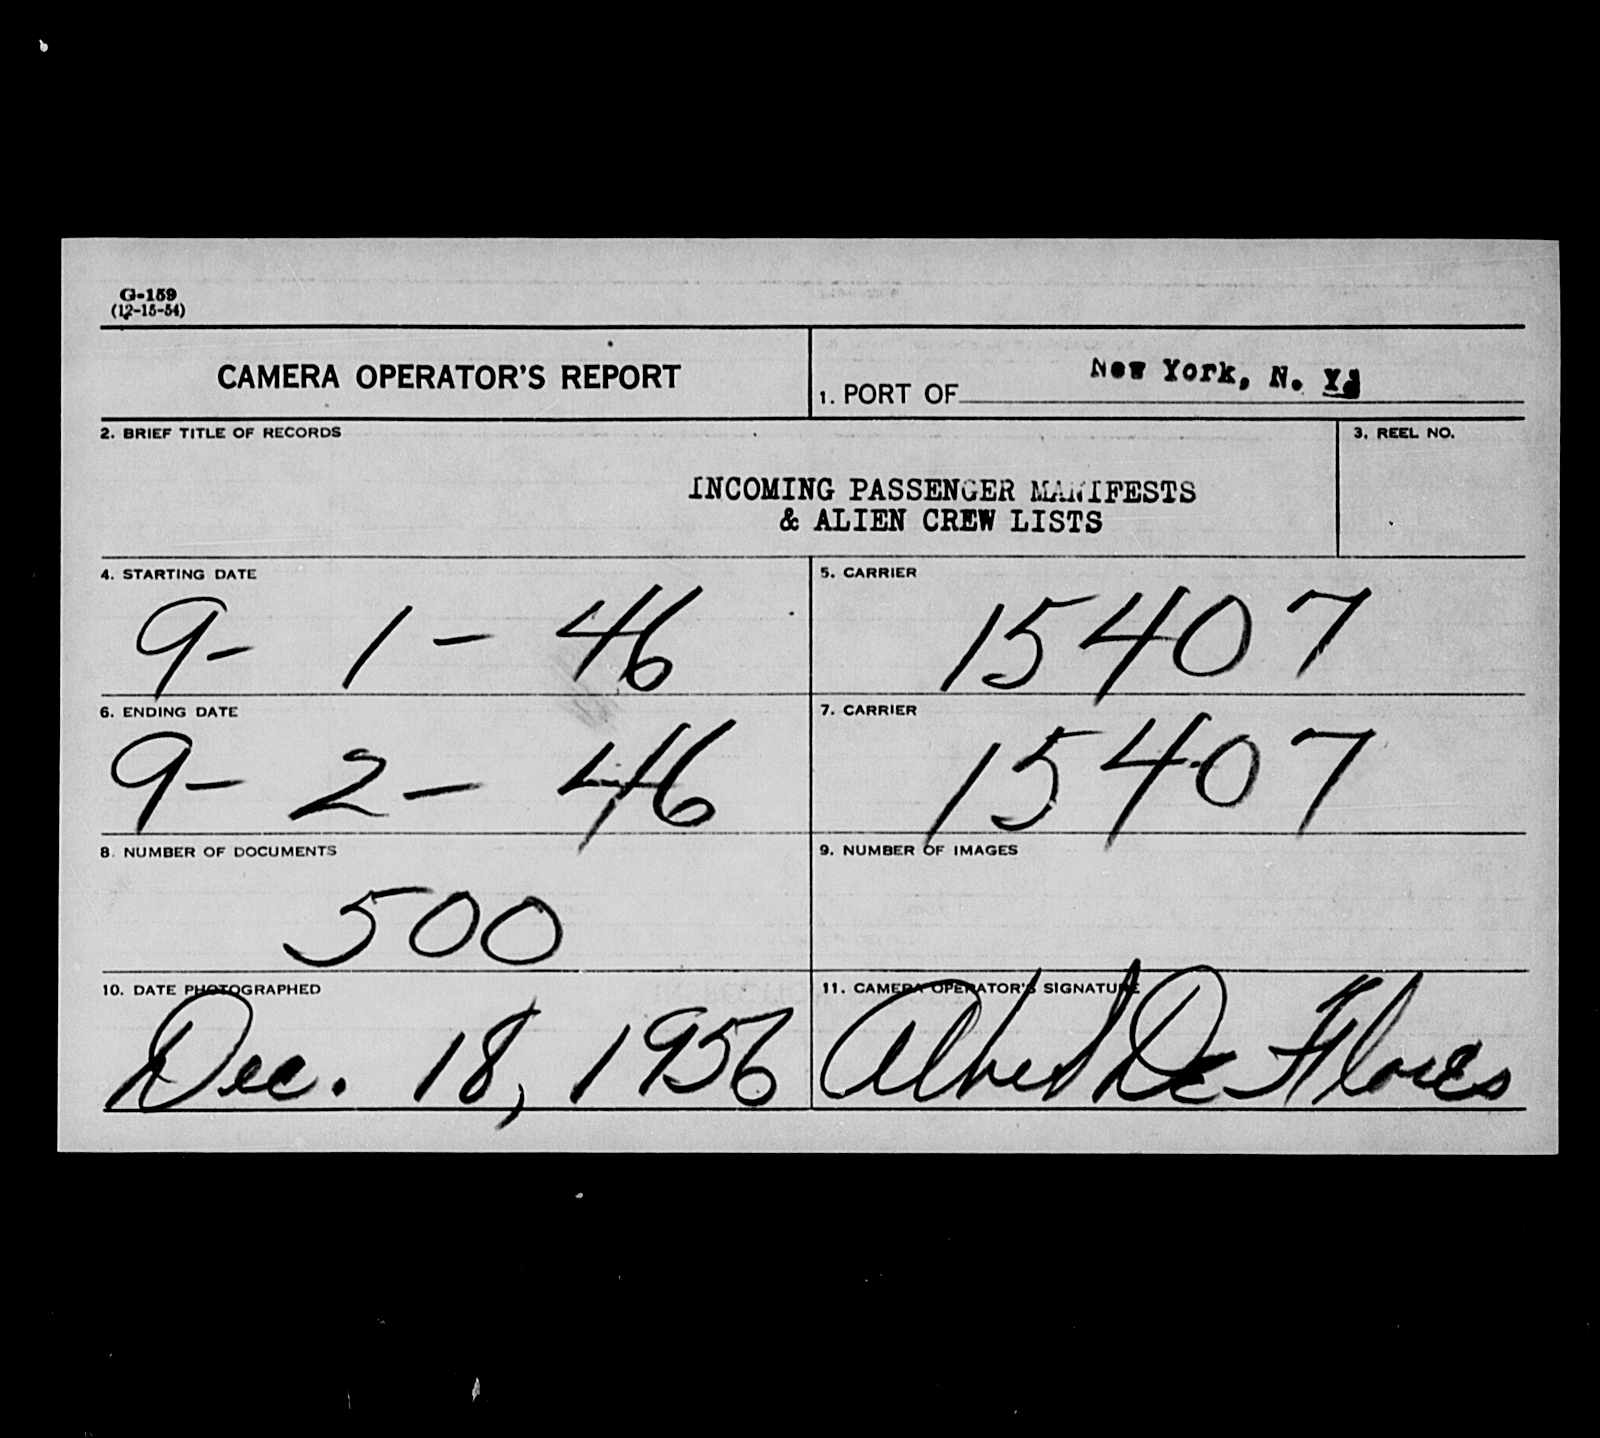 G-159
(12-15-54)
CAMERA OPERATOR'S REPORT
1. PORT OF New York, N. Y.
2. BRIEF TITLE OF RECORDS
3. REEL NO.
INCOMING PASSENGER MANIFESTS
& ALIEN CREW LISTS
4. STARTING DATE
9- 1 - 46
5. CARRIER
15407
6. ENDING DATE
9- 2 - 46
7. CARRIER
15407
8. NUMBER OF DOCUMENTS
500
9. NUMBER OF IMAGES
10. DATE PHOTOGRAPHED
Dec. 18, 1956
11. CAMERA OPERATOR'S SIGNATURE
Albert De Flores